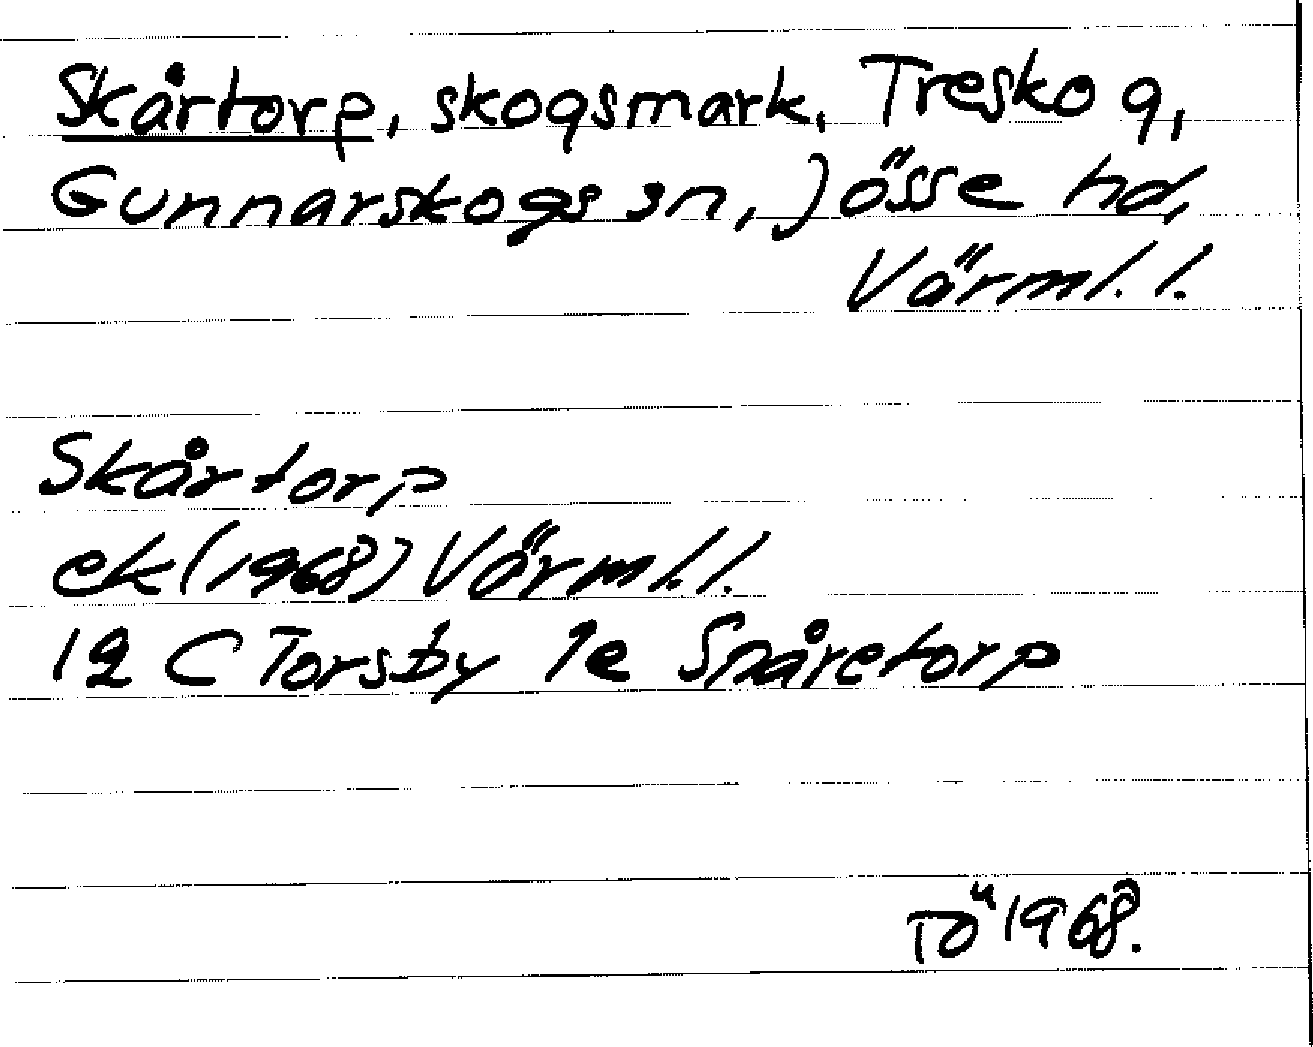 Skårtorp, skogsmark, Treskog,
Gunnarskogs sn, Jösse hd,
Värml. l.
Skårtorp
ek (1968) Värml. l.
12 C Torsby 1e Snåretorp
TÖ 1968.